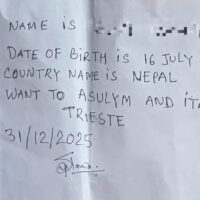 NAME IS
DATE OF BIRTH iS 16 JULY
COUNTRY NAME iS NEPAL
WANT TO ASULYM AND iTA
TRIESTE
31/12/2025